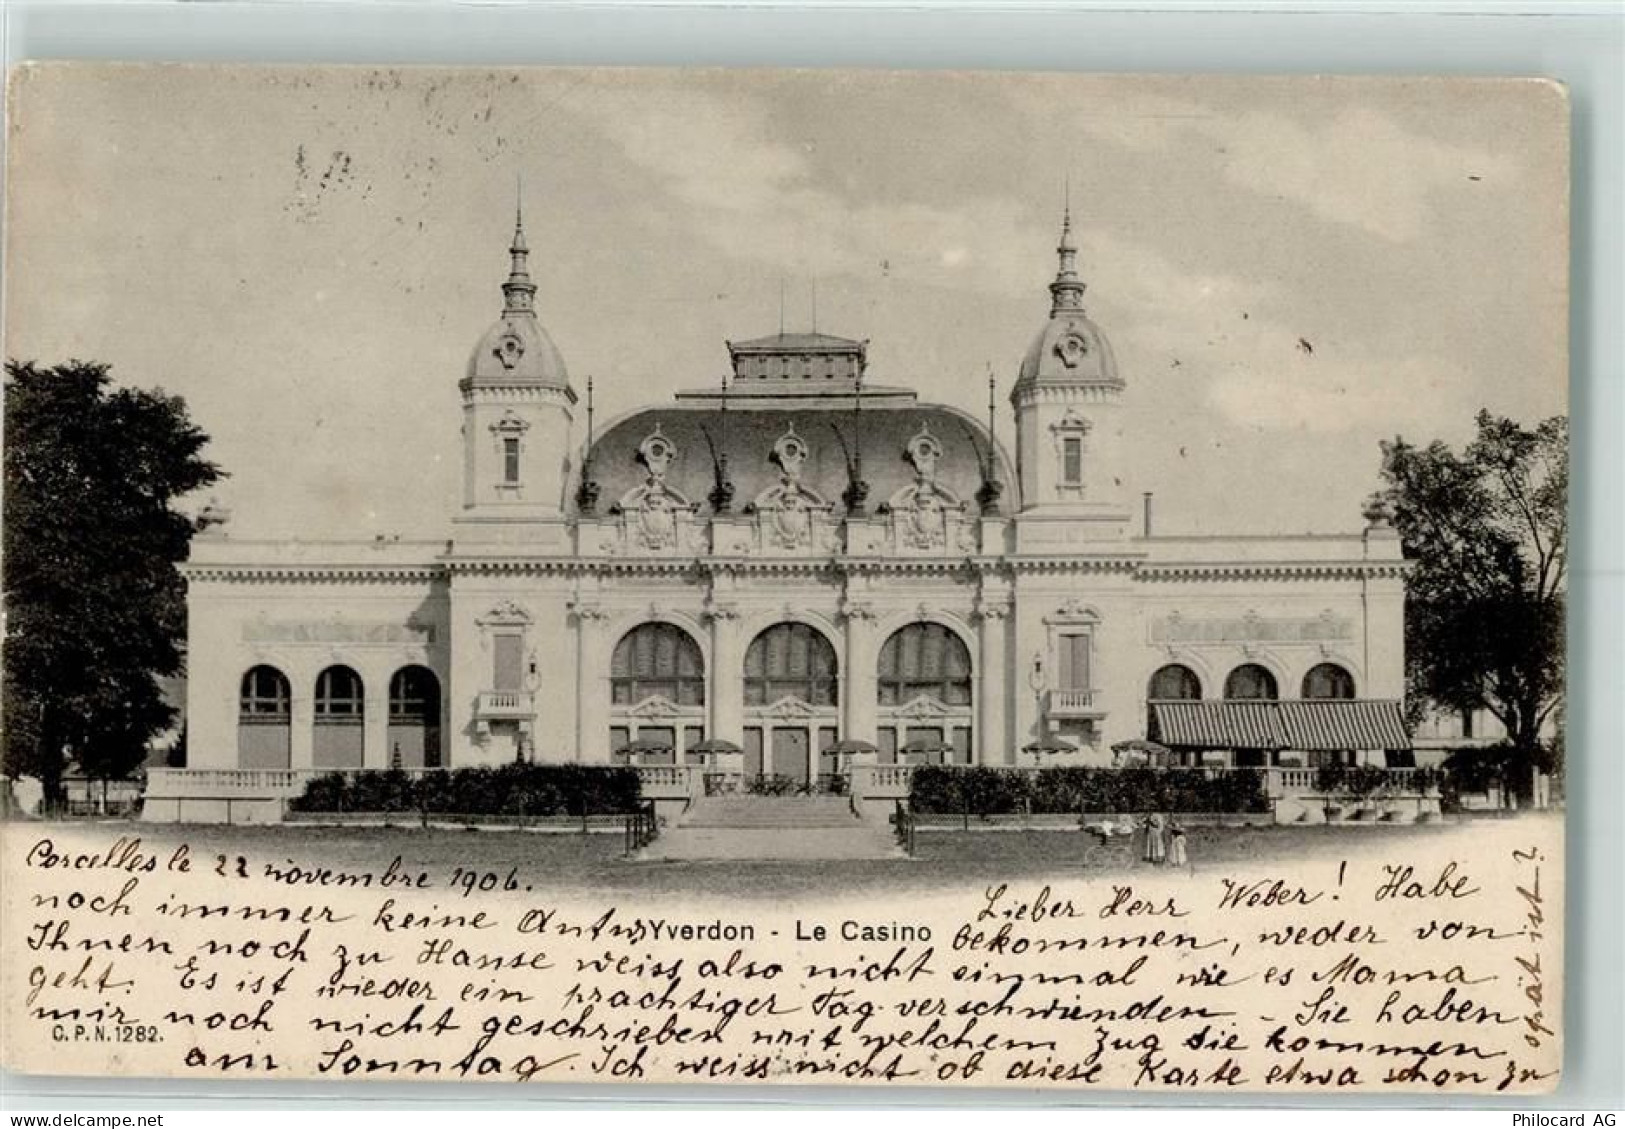 Porcelles le 22 novembre 1906.
Lieber Herr Weber! Habe
noch immer keine Antw. bekommen, weder von
Yverdon - Le Casino
Ihnen noch zu Hause weiss also nicht einmal wie es Mama
geht. Es ist wieder ein prachtiger Tag verschwunden. - Sie haben
mir noch nicht geschrieben mit welchem Zug sie kommen
C.P.N.1282.
am Sonntag. Ich weiss nicht ob diese Karte etwa schon zu
spät ist?
Philocard AG